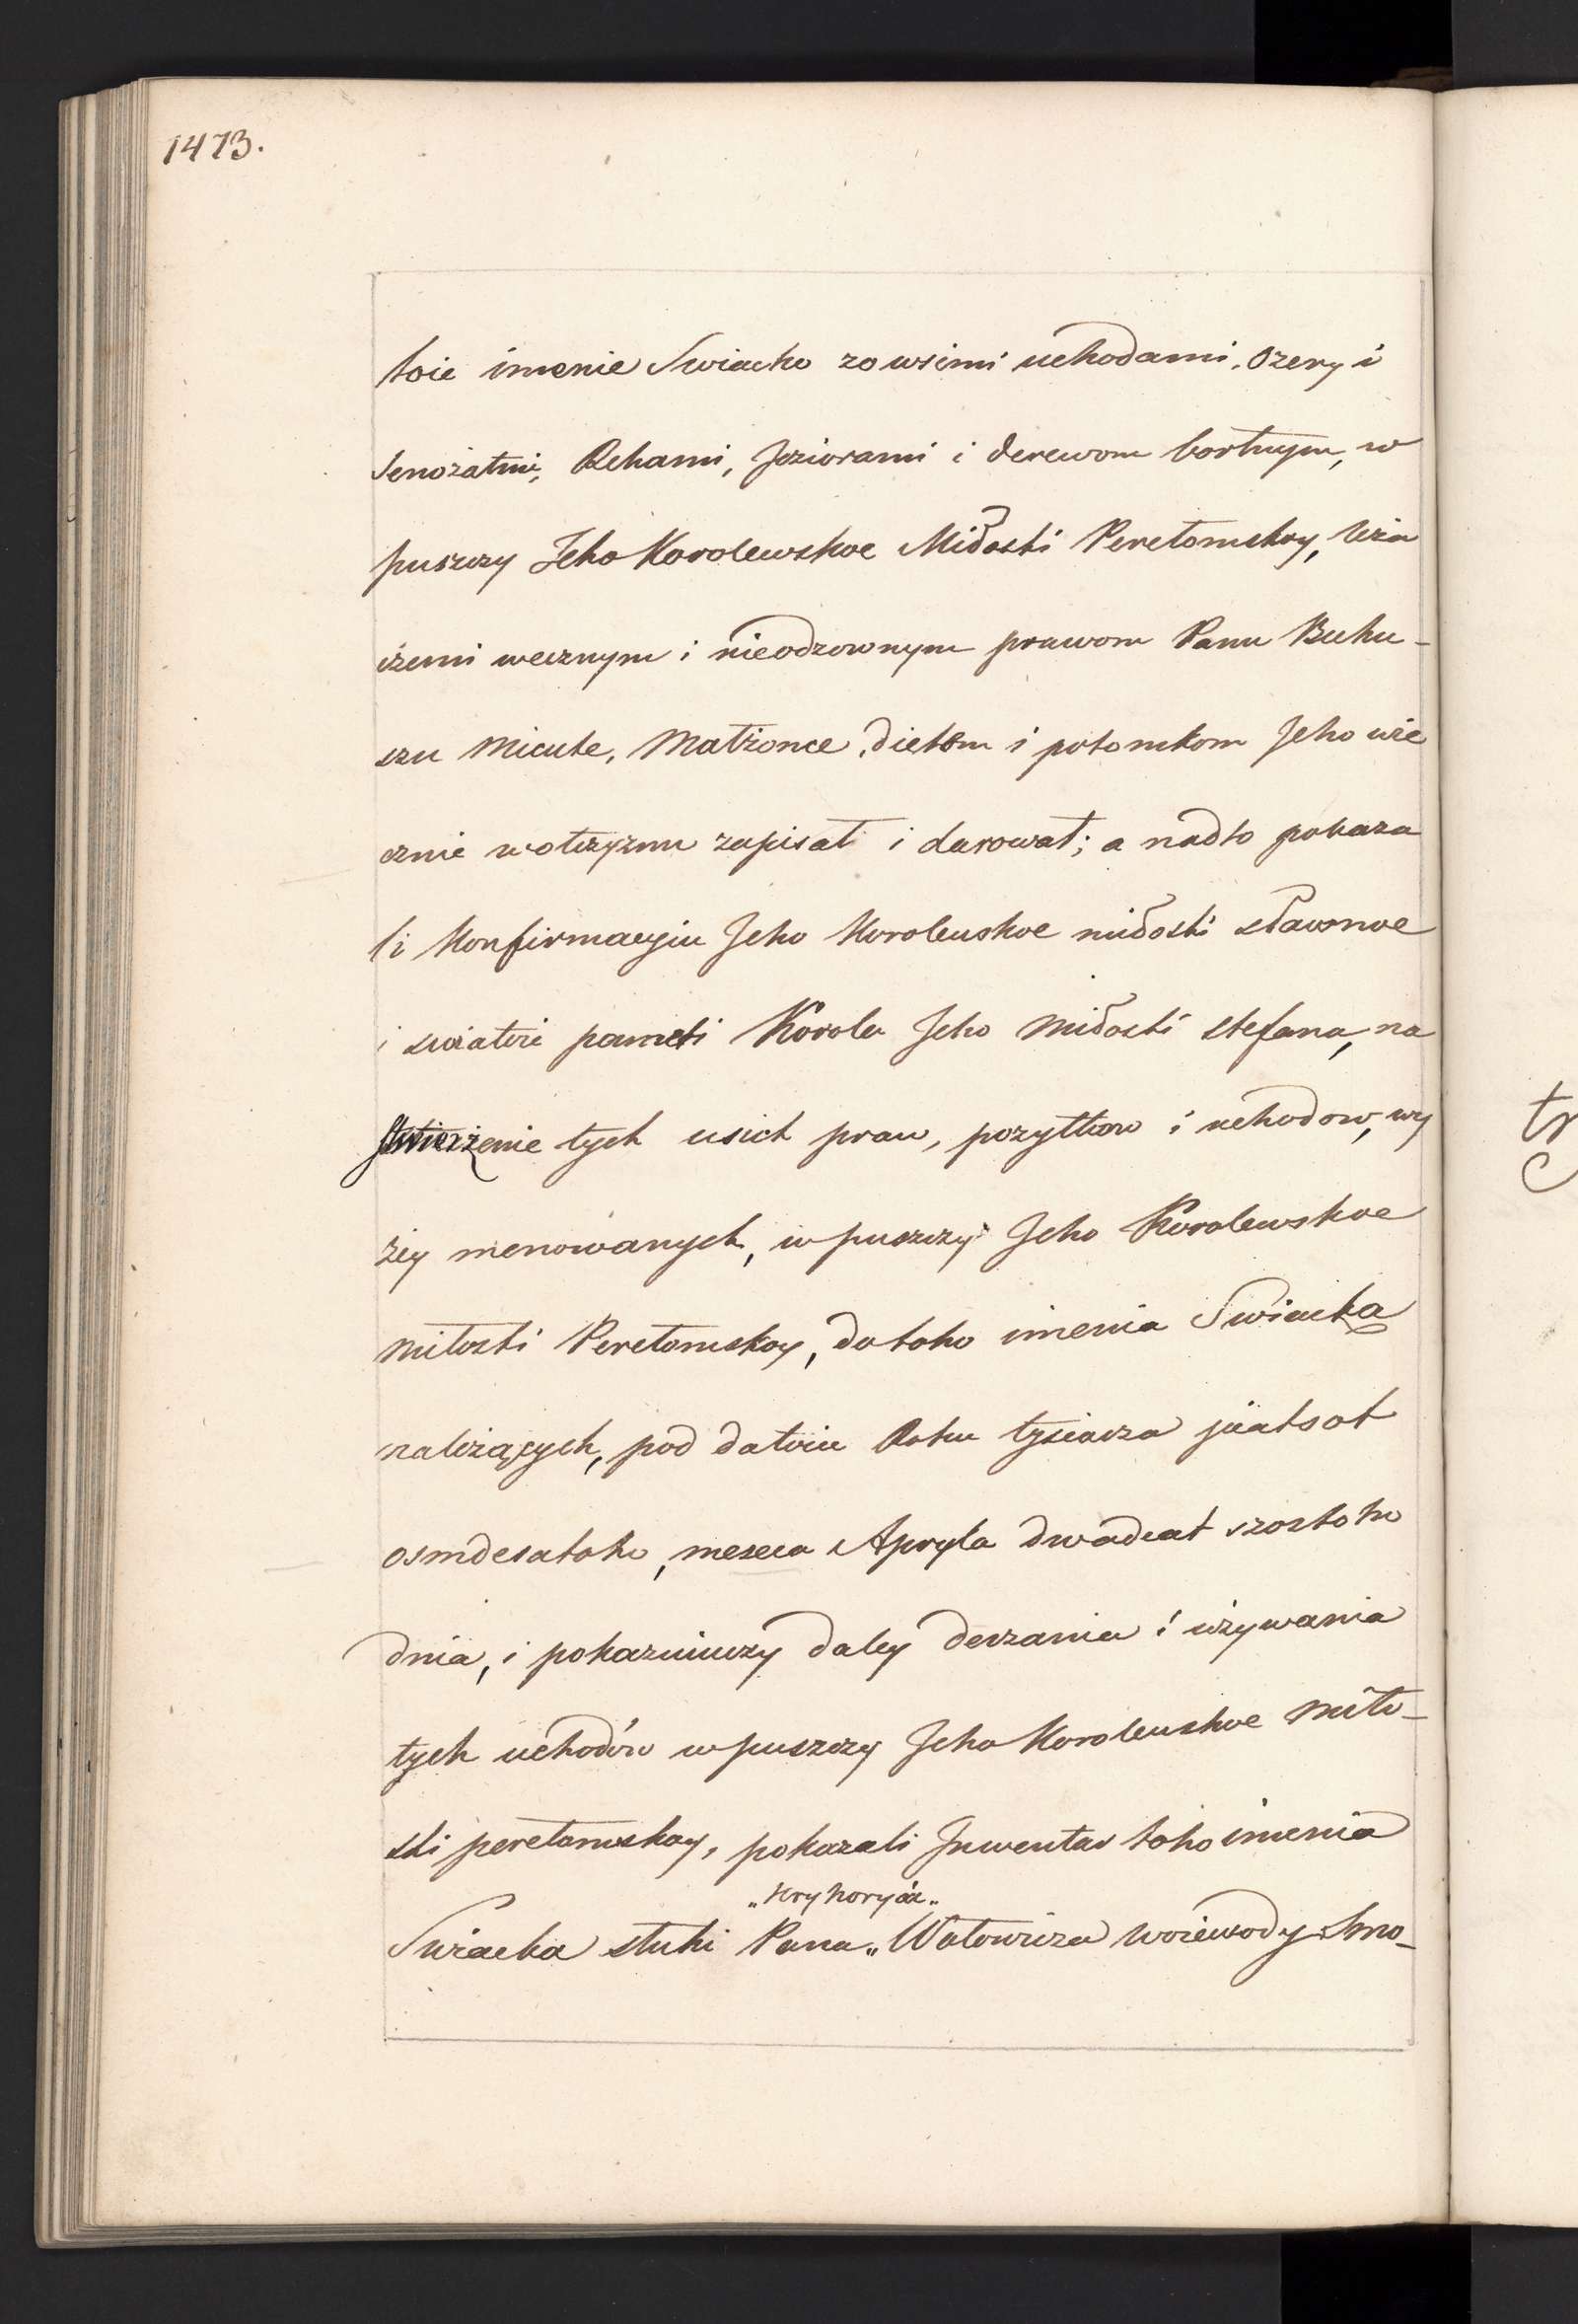 1473.
toie imenie Swiacko zo wsimi uchodami, Ozery i
Senożatmi, Rekami, Jeziorami i derewom bortnym, w
puszczy Jeho Korolewskoe Miłosti Peretomskoy, leża
czemi wecznym i nieodzownym prawom Panu Buhu-
szu Micute, Małżonce, dietom i potomkom Jeho wie
cznie w otczyznu zapisał i darował; a nadto pokaza
li Konfirmacyiu Jeho Korolewskoe miłosti sławnoe
i swiatoie pameti Korola Jeho Miłosti Stefana, na
stwierżenie tych usich praw, pożytkow i uchodow, wy
żey menowanych, w puszczy Jeho Korolewskoe
miłosti Peretomskoy, do toho imenia Swiacka
należących, pod datoiu Roku tysiacza piatsot
osmdesatoho, meseca Apryla dwadcat szostoho
dnia, i pokazuiuczy daley derżania i używania
tych uchodów w puszczy Jeho Korolewskoe miło-
sti peretomskoy, pokazali Inwentar toho imenia
„Hryhorya„
Swiacka stuki Pana „ Wołowicza woiewody Smo-
tr